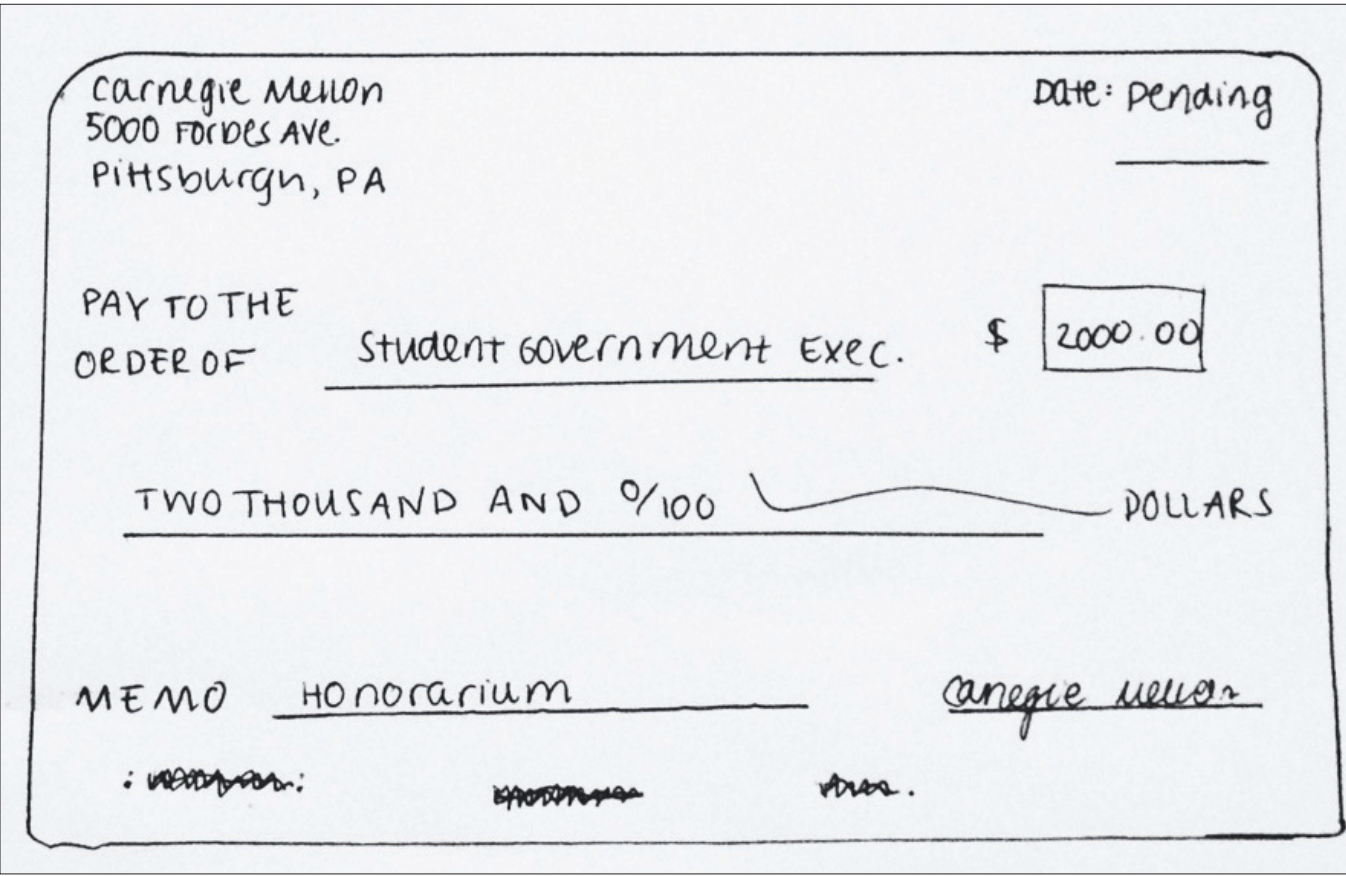 Carnegie Mellon
5000 Forbes Ave.
Pittsburgh, PA
Date: Pending
PAY TO THE
ORDER OF Student Government Exec. $ 2000.00
TWO THOUSAND AND 0/100 DOLLARS
MEMO Honorarium Canegie Mellon